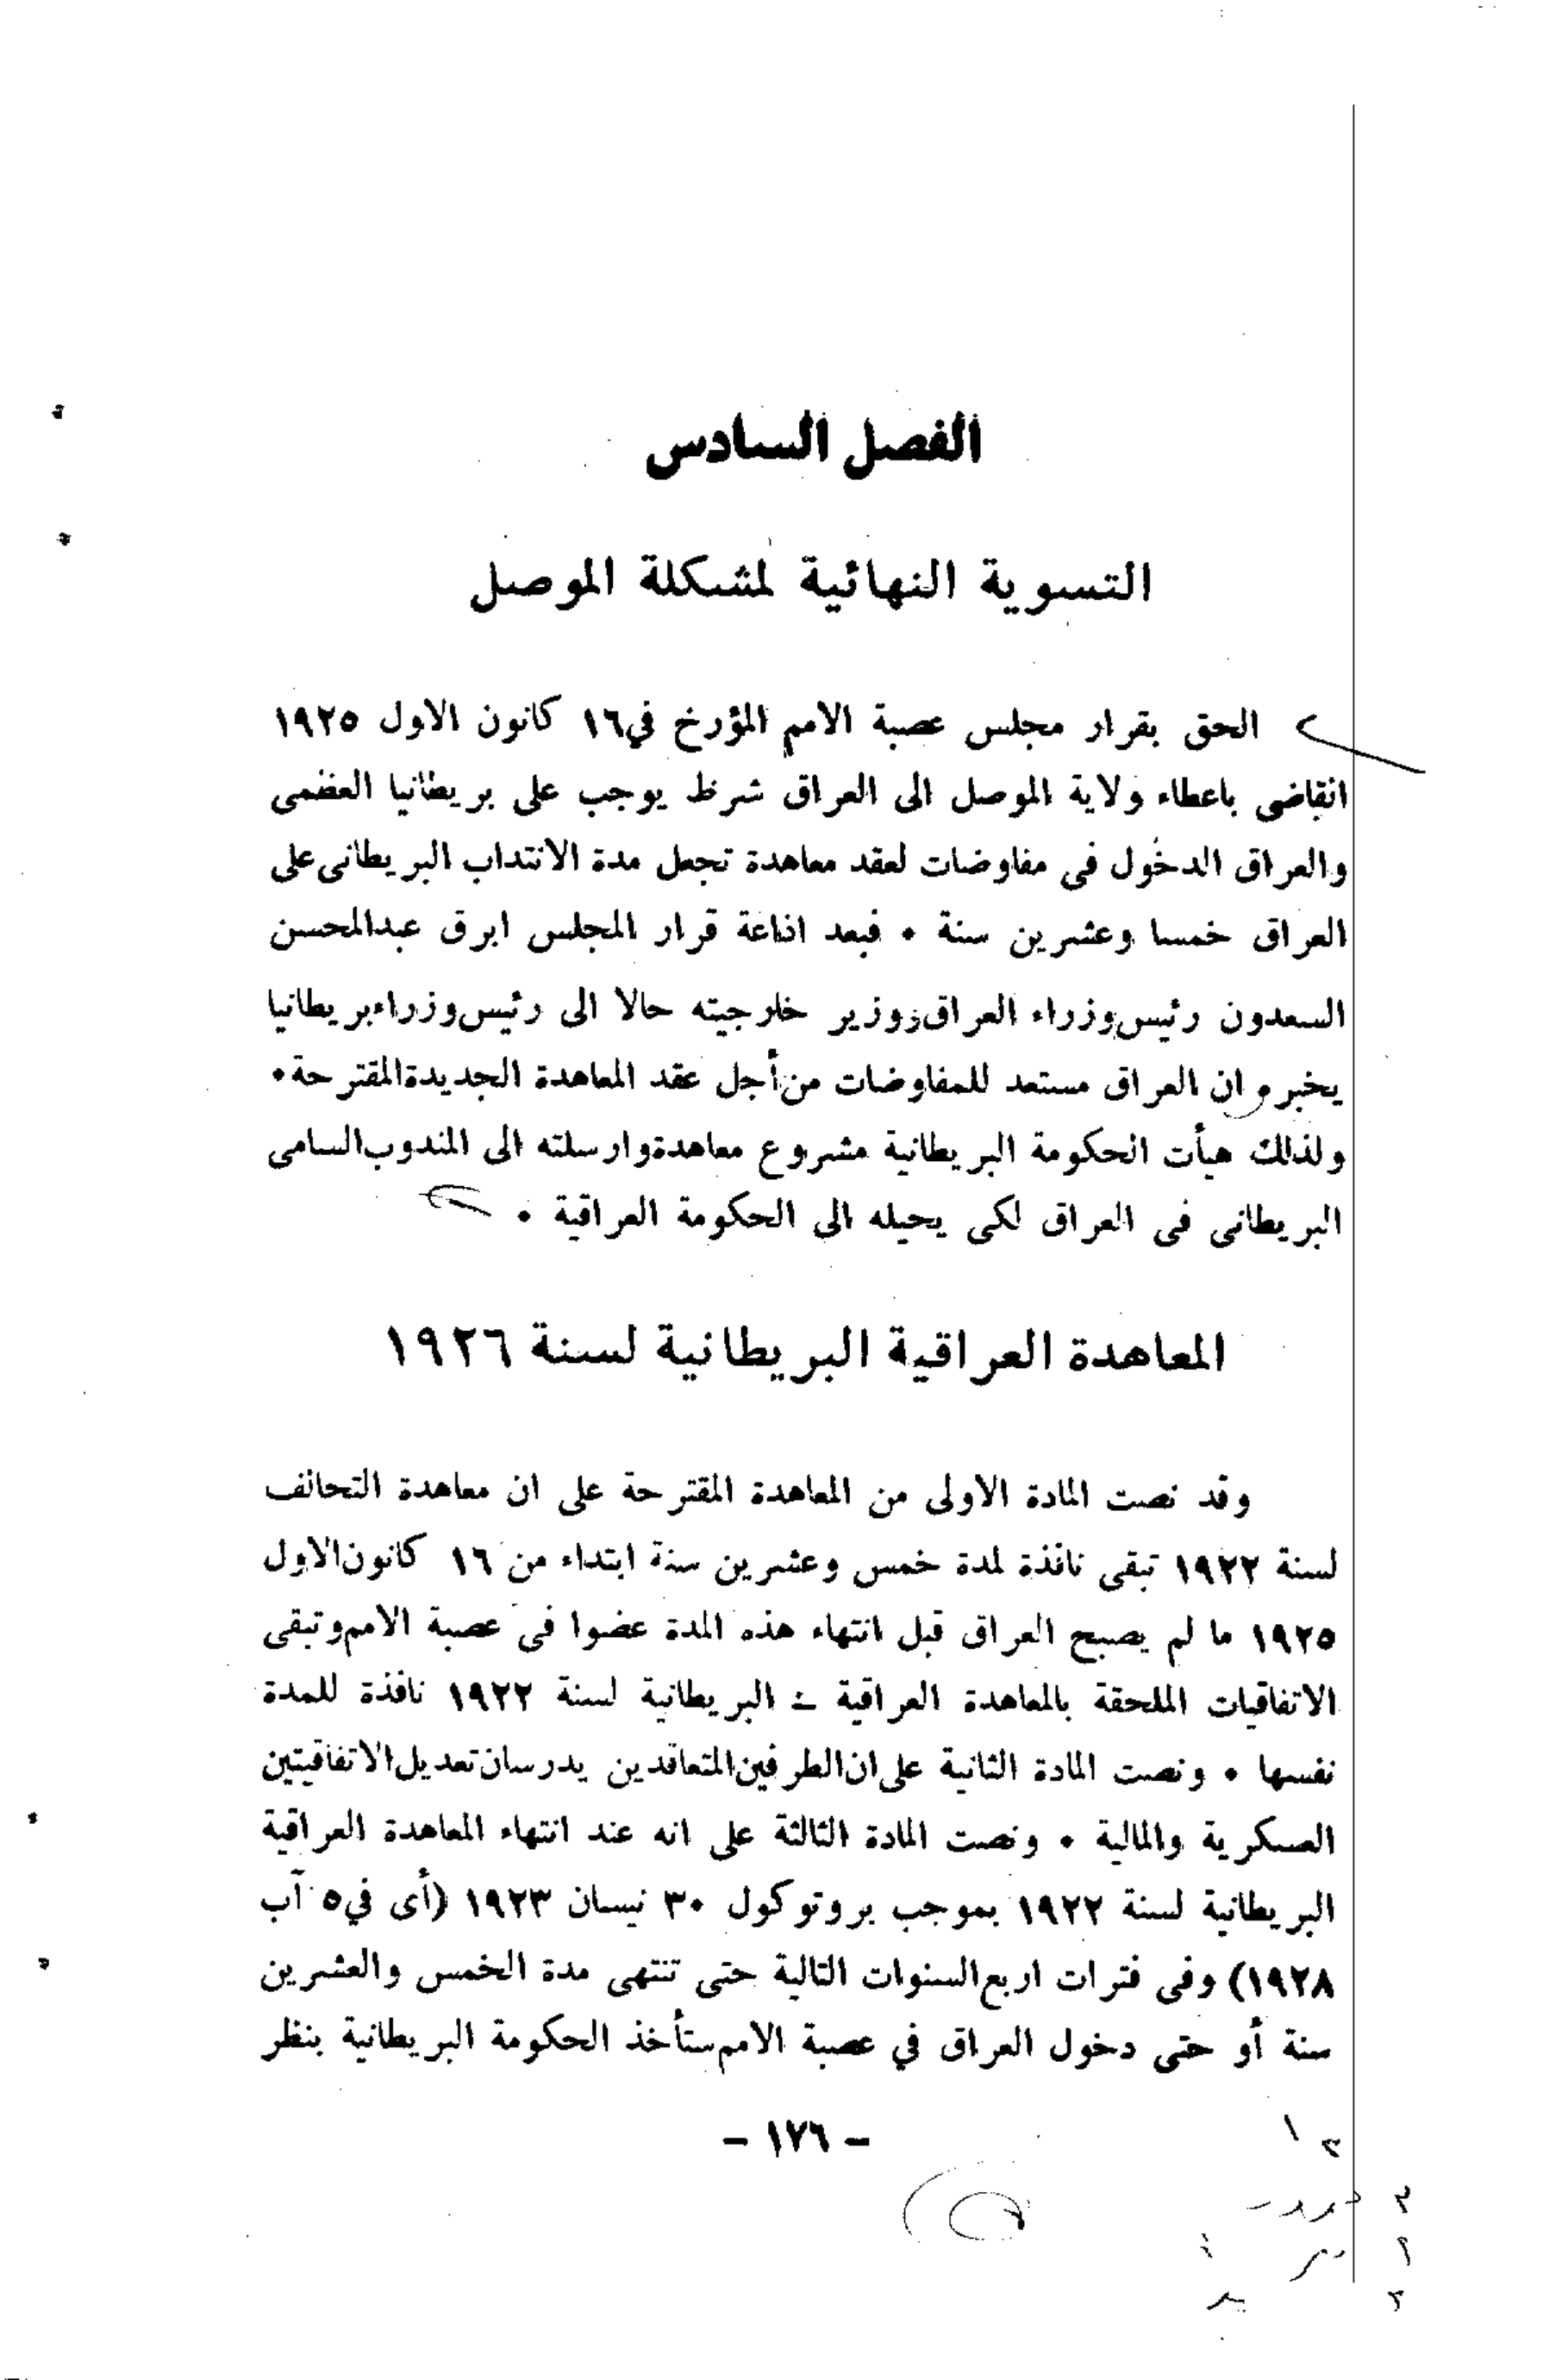 الفصل السادس
التسوية النهائية لمشكلة الموصل
الحق بقرار مجلس عصبة الامم المؤرخ في ١٦ كانون الاول ١٩٢٥
انقاضى باعطاء ولاية الموصل الى العراق شرط يوجب على بريطانيا العضمى
والعراق الدخول فى مفاوضات لعقد معاهدة تجعل مدة الانتداب البريطانى على
العراق خمسا وعشرين سنة ٠ فبعد اذاعة قرار المجلس ابرق عبدالمحسن
السعدون رئيس وزراء العراق ووزير خارجيته حالا الى رئيس وزراء بريطانيا
يخبره ان العراق مستعد للمفاوضات من أجل عقد المعاهدة الجديدة المقترحة ٠
ولذلك هيأت الحكومة البريطانية مشروع معاهدة وارسلته الى المندوب السامى
البريطانى فى العراق لكى يحيله الى الحكومة العراقية ٠
المعاهدة العراقية البريطانية لسنة ١٩٢٦
وقد نصت المادة الاولى من المعاهدة المقترحة على ان معاهدة التحالف
لسنة ١٩٢٢ تبقى نافذة لمدة خمس وعشرين سنة ابتداء من ١٦ كانون الاول
١٩٢٥ ما لم يصبح العراق قبل انتهاء هذه المدة عضوا فى عصبة الامم وتبقى
الاتفاقيات الملحقة بالمعاهدة العراقية - البريطانية لسنة ١٩٢٢ نافذة للمدة
نفسها ٠ ونصت المادة الثانية على ان الطرفين المتعاقدين يدرسان تعديل الاتفاقيتين
العسكرية والمالية ٠ ونصت المادة الثالثة على انه عند انتهاء المعاهدة العراقية
البريطانية لسنة ١٩٢٢ بموجب بروتوكول ٣٠ نيسان ١٩٢٣ (أى في ٥ آب
١٩٢٨) وفى فترات اربع السنوات التالية حتى تنتهى مدة الخمس والعشرين
سنة أو حتى دخول العراق في عصبة الامم ستأخذ الحكومة البريطانية بنظر
- ١٧٦ -